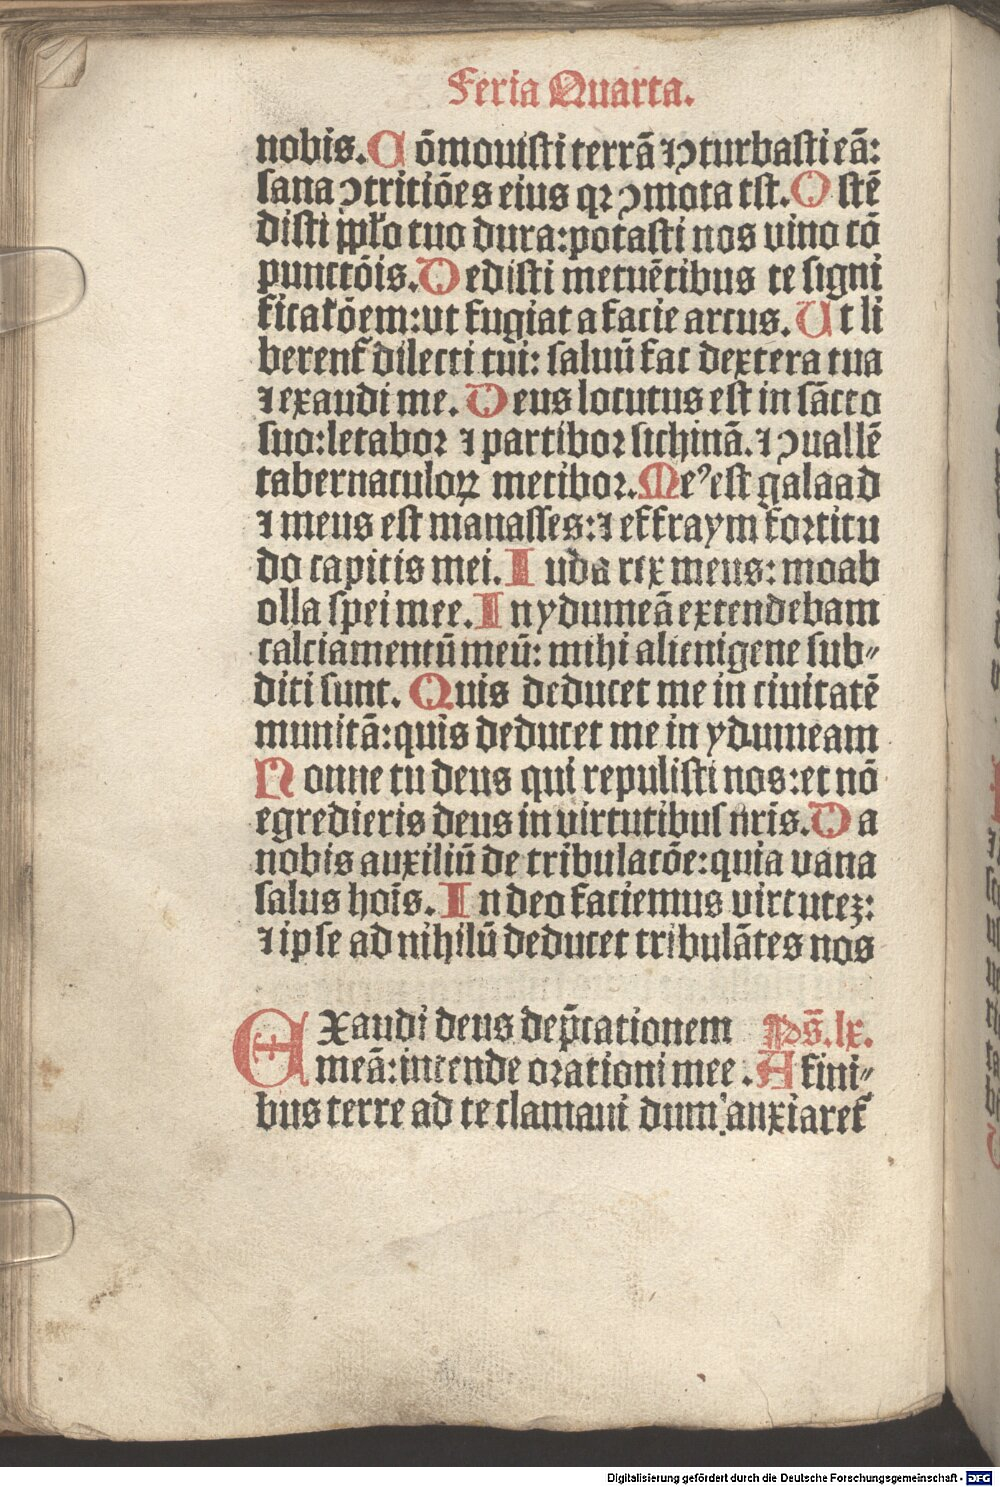 Feria Quarta.
nobis. Cōmouisti terrā ⁊ ꝯturbasti eā:
sana ꝯtritiōes eius qꝛ ꝯmota est. Ostē
disti ppl'o tuo dura: potasti nos vino cō
punctōis. Dedisti metuētibus te signi
ficatōem: vt fugiat a facie arcus. Ut li
berent᷑ dilecti tui: saluū fac dextera tua
⁊ exaudi me. Deus locutus est in sācto
suo: letabor ⁊ partibor sichinā. ⁊ ꝯuallē
tabernaculoꝝ metibor. Meꝰ est galaad
⁊ meus est manasses: ⁊ effraym fortitu
do capitis mei. Iuda rex meus: moab
olla spei mee. In ydumeā extendebam
calciamentū meū: mihi alienigene sub⸗
diti sunt. Quis deducet me in ciuitatē
munitā: quis deducet me in ydumeam
Nonne tu deus qui repulisti nos: et nō
egredieris deus in virtutibus nr̄is. Da
nobis auxiliū de tribulacōe: quia vana
salus hoīs. In deo faciemus virtutez:
⁊ ipse ad nihilū deducet tribulātes nos
EXaudi deus dep̄cationem Ps̄. lx.
meā: intende orationi mee. A fini⸗
bus terre ad te clamaui dum anxiaret᷑
Digitalisierung gefördert durch die Deutsche Forschungsgemeinschaft - DFG